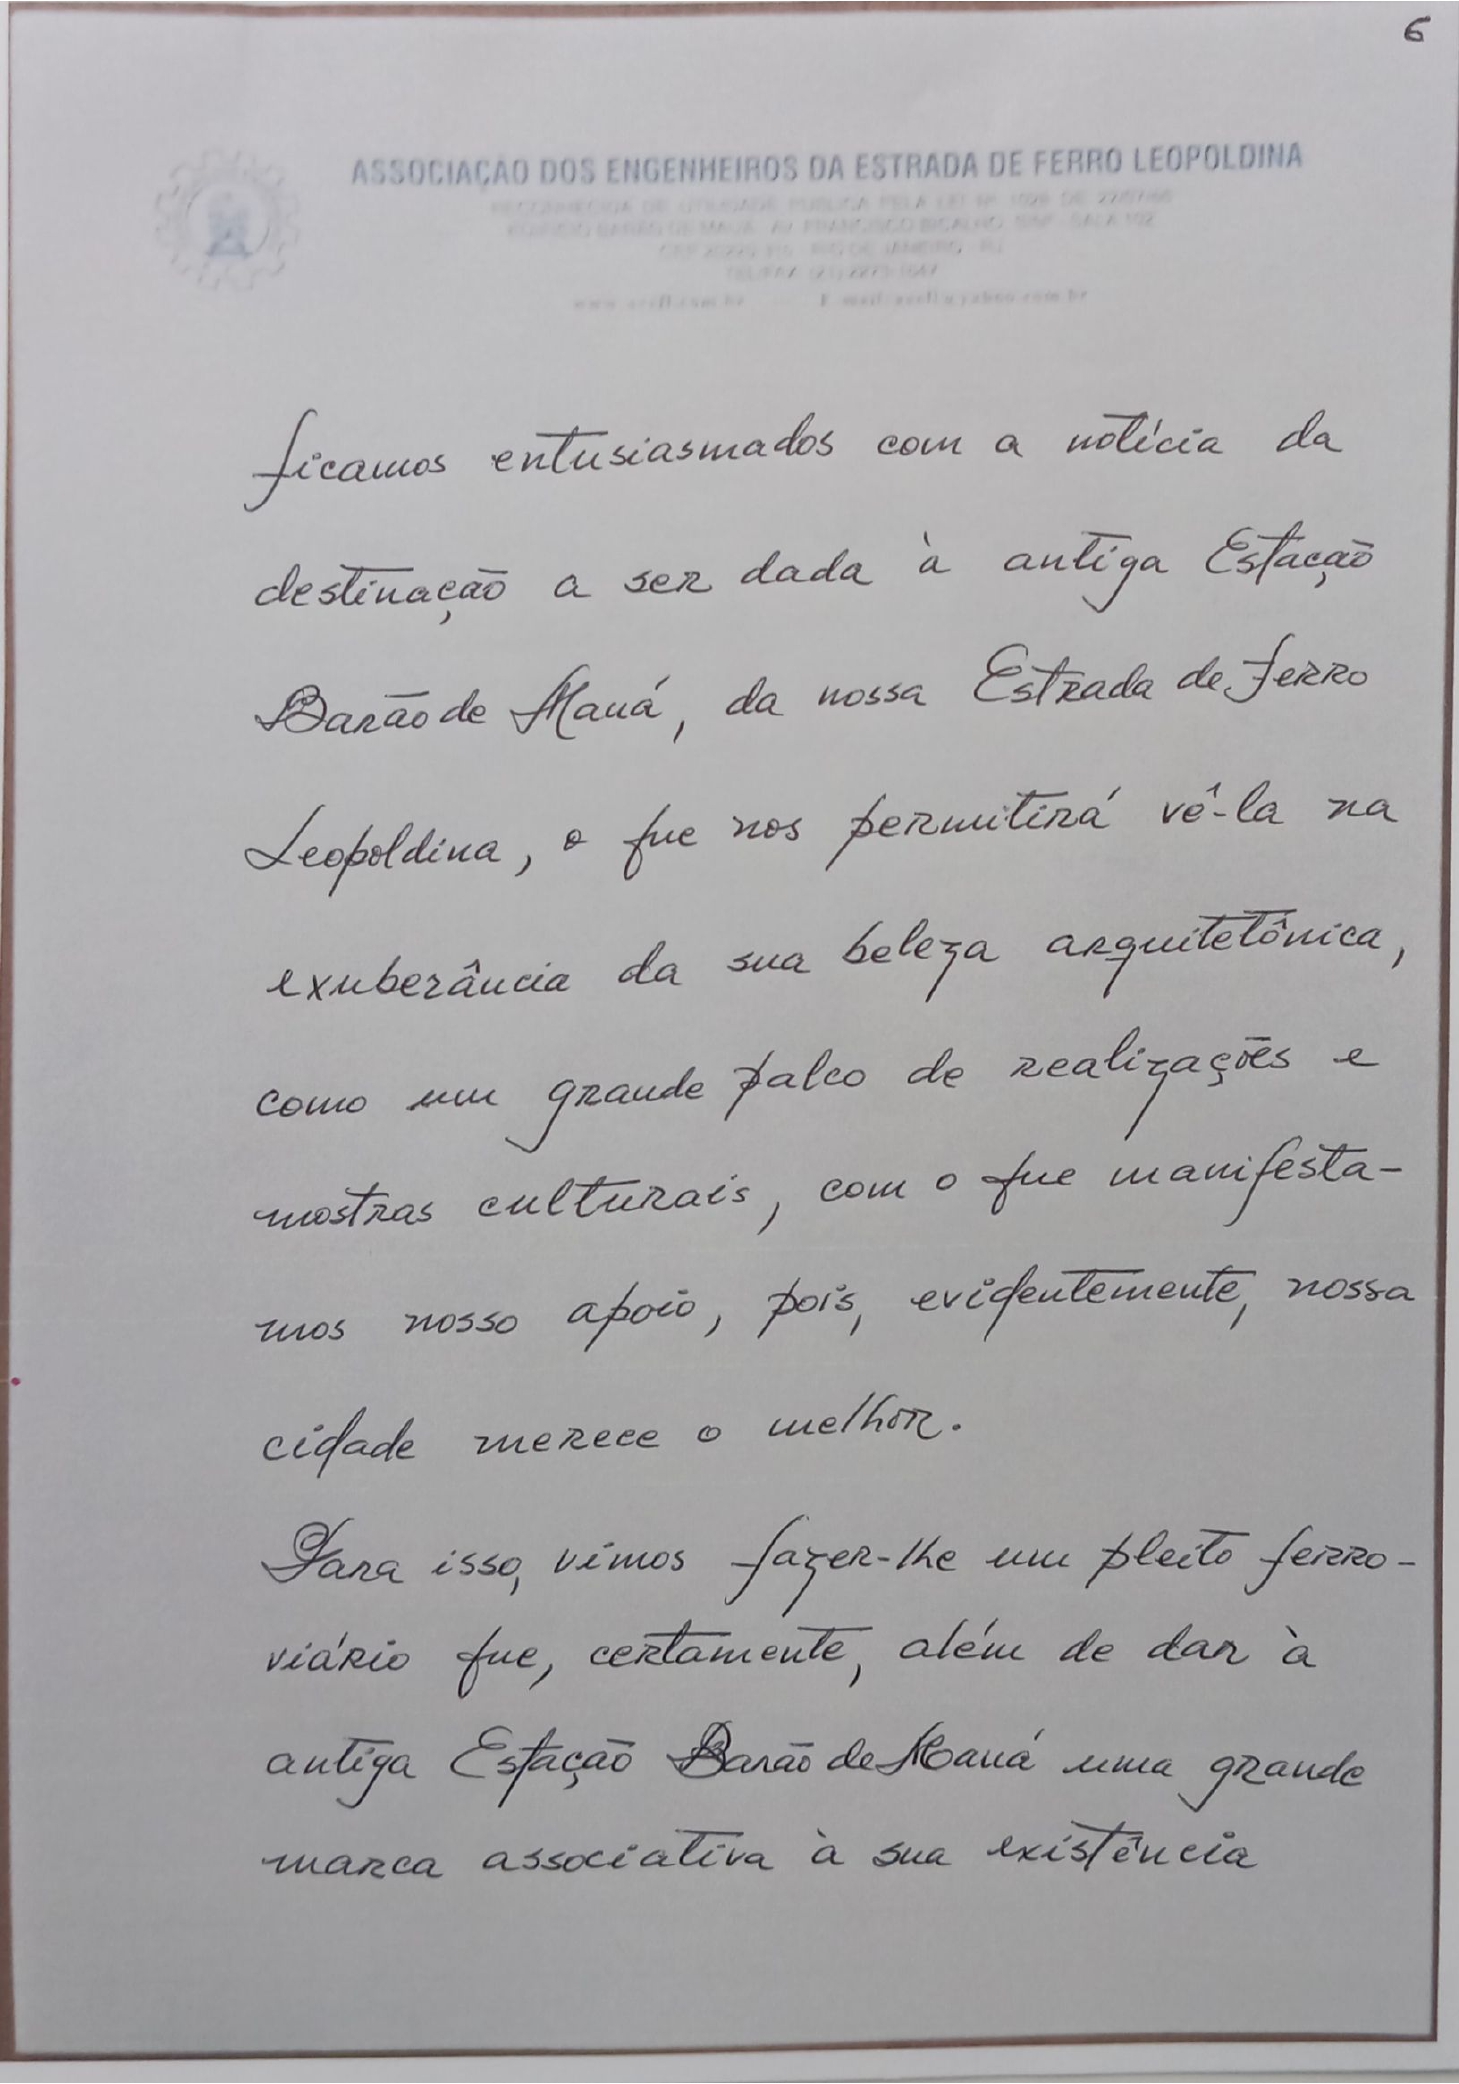 6
ASSOCIAÇÃO DOS ENGENHEIROS DA ESTRADA DE FERRO LEOPOLDINA
RECONHECIDA DE UTILIDADE PÚBLICA PELA LEI Nº 1026 DE
EDIFÍCIO BARÃO DE MAUÁ - AV. FRANCISCO BICALHO, S/Nº - SALA 102
RIO DE JANEIRO - RJ
TEL/FAX: (21)
ficamos entusiasmados com a notícia da
destinação a ser dada à antiga Estação
Barão de Mauá, da nossa Estrada de Ferro
Leopoldina, o que nos permitirá vê-la na
exuberância da sua beleza arquitetônica,
como um grande palco de realizações e
mostras culturais, com o que manifesta-
mos nosso apoio, pois, evidentemente, nossa
cidade merece o melhor.
Para isso, vimos fazer-lhe um pleito ferro-
viário que, certamente, além de dar à
antiga Estação Barão de Mauá uma grande
marca associativa à sua existência